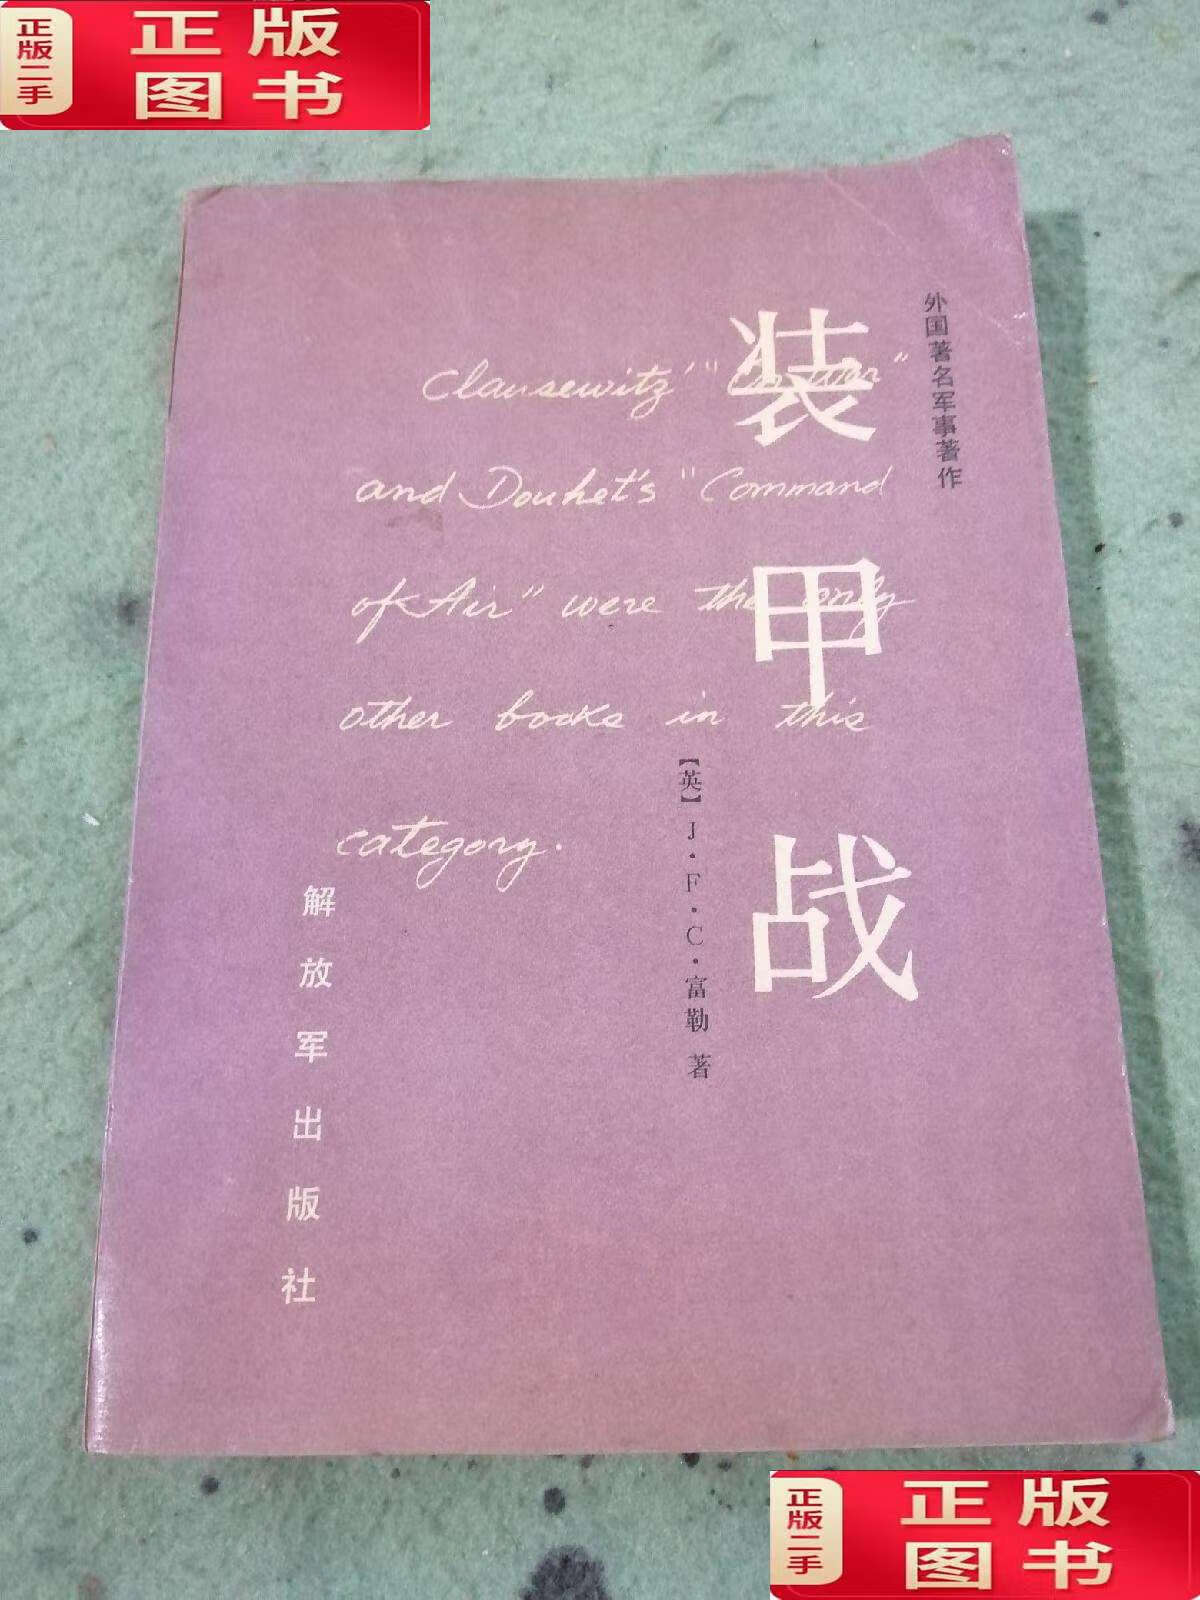 正版二手
正版
图书
外国著名军事著作
装甲战
Clausewitz' "On war"
and Douhet's "Command
of Air" were the only
other books in this
category.
【英】J·F·C·富勒 著
解放军出版社
正版二手
正版
图书